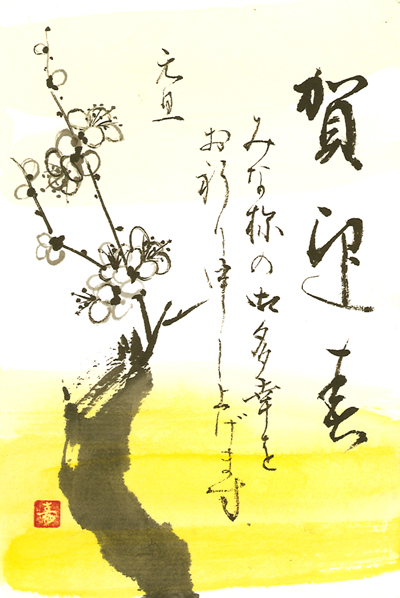 賀迎春
みな様の御多幸を
お祈り申し上げます
元旦